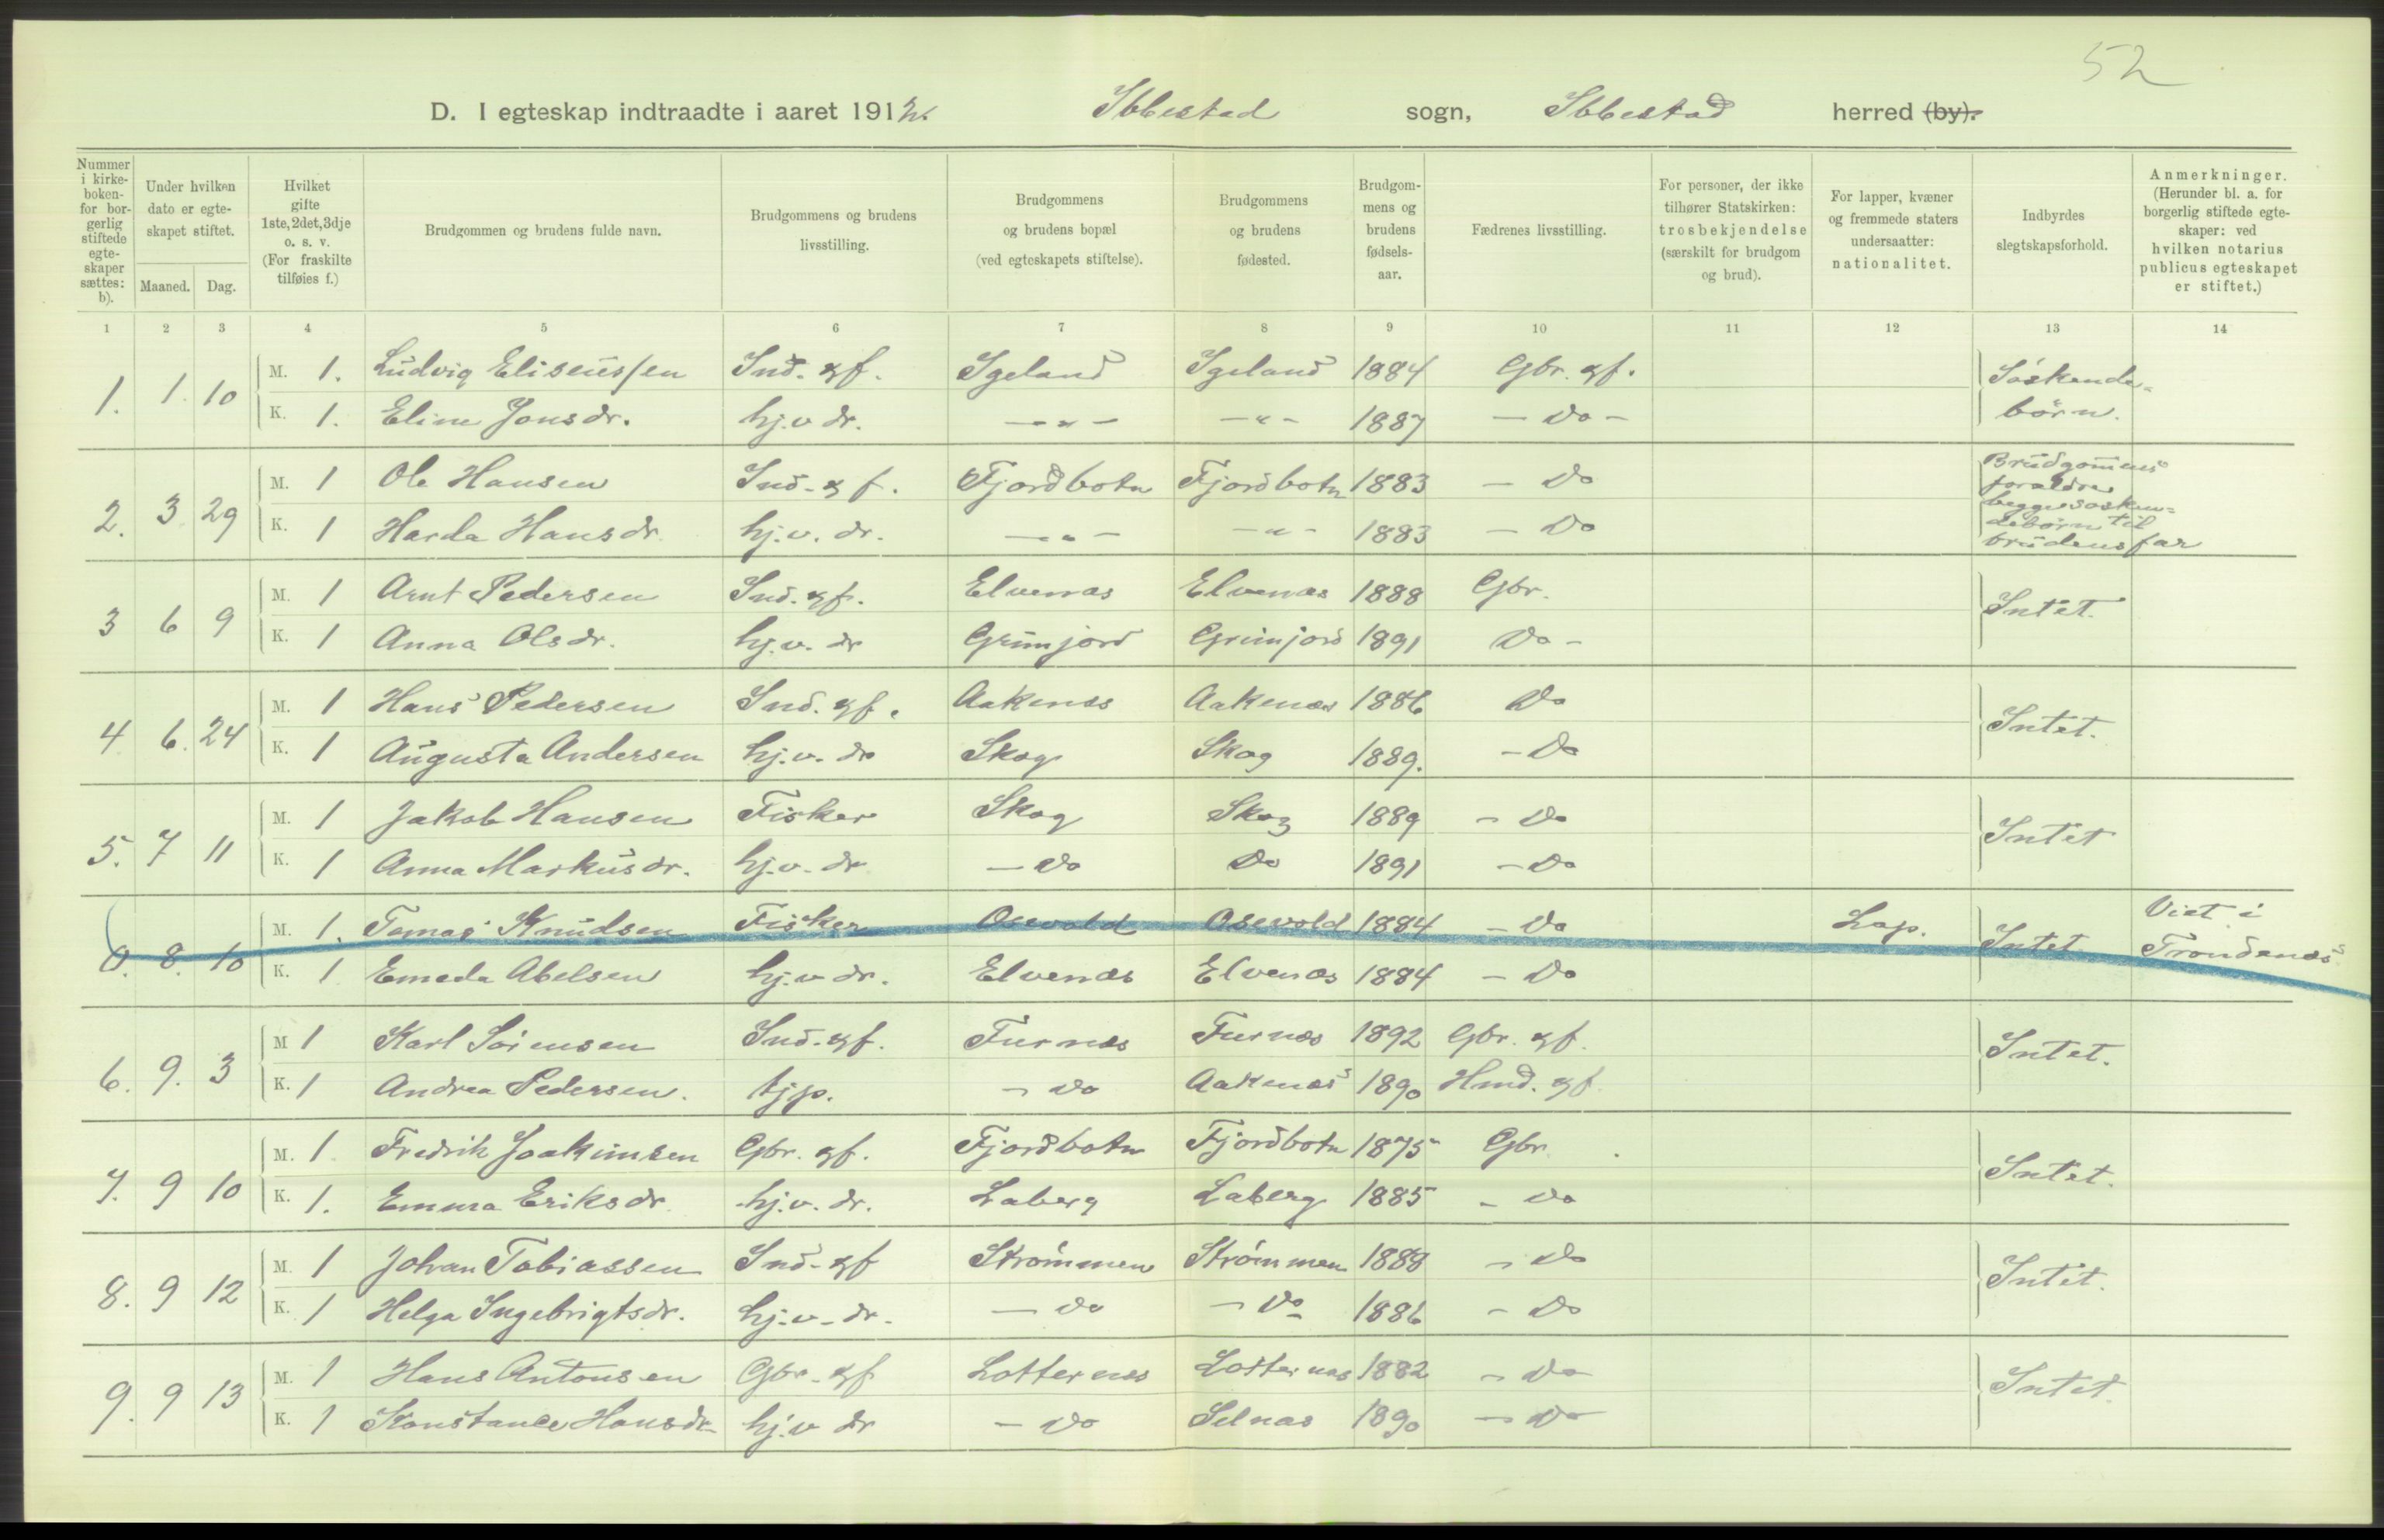 52
D. I egteskap indtraadte i aaret 1912. Ibbestad sogn, Ibbestad herred (by).
Nummer i kirke-boken- for bor-gerlig stiftede egte-skaper sættes: b).
Under hvilken dato er egte-skapet stiftet.
Maaned. Dag.
Hvilket gifte 1ste, 2det, 3dje o. s. v. (For fraskilte tilføies f.)
Brudgommen og brudens fulde navn.
Brudgommens og brudens livsstilling.
Brudgommens og brudens bopæl (ved egteskapets stiftelse).
Brudgommens og brudens fødested.
Brudgom-mens og brudens fødsels-aar.
Fædrenes livsstilling.
For personer, der ikke tilhører Statskirken: trosbekjendelse (særskilt for brudgom og brud).
For lapper, kvæner og fremmede staters undersaatter: nationalitet.
Indbyrdes slegtskapsforhold.
Anmerkninger. (Herunder bl. a. for borgerlig stiftede egte-skaper: ved hvilken notarius publicus egteskapet er stiftet.)
1 2 3 4 5 6 7 8 9 10 11 12 13 14
1. 1. 10 M. 1. Ludvig Eliseussen Ind. & f. Igeland Igeland 1884 Gbr. & f. Söskende-
K. 1. Eline Jonsdr. hj.v dr. — " — — " — 1887 — Do — börn.
2. 3 29 M. 1 Ole Hansen Ind. & f. Fjordbotn Fjordbotn 1883 — Do Brudgommens forældre begge søsken-
K. 1 Harda Hansdr. hj.v. dr. — " — — " — 1883 — Do debørn til brudens far
3 6 9 M. 1 Arnt Pedersen Ind. & f. Elvenæs Elvenæs 1888 Gbr. Intet.
K. 1 Anna Olsdr. hj.v. dr Grimjord Grimjord 1891 Do —
4 6. 24 M. 1 Hans Pedersen Ind. & f. Aakenes Aakenæs 1886 Do Intet.
K. 1 Augusta Andersen hj.v. dr Skog Skog 1889. — Do
5. 7 11 M. 1 Jakob Hansen Fisker Skog Skog 1889 — Do Intet
K. 1 Anna Markusdr. hj.v. dr — Do Do 1891 — Do
0. 8. 10 M. 1. Tomas Knudsen Fisker Osevold Osevold 1884 — Do Lap. Intet Viet i Trondenæs
K. 1 Emeda Abelsen hj.v dr. Elvenæs Elvenæs 1884 — Do
6. 9. 3 M 1 Karl Sörensen Ind. & f. Furnæs Furnæs 1892 Gbr. & f. Intet.
K. 1 Andrea Pedersen. tjp. — Do Aakenæs 1890 Hmd. & f.
7. 9 10 M. 1. Fredrik Joakimsen Gbr. & f. Fjordbotn Fjordbotn 1875 Gbr. Intet.
K. 1. Emma Eriksdr. hj.v. dr. Laberg Laberg 1885 — Do
8. 9 12 M. 1 Johan Tobiassen Ind. & f Strömmen Strömmen 1888 — Do Intet.
K. 1 Helga Ingebrigtsdr. hj.v. dr. — Do — Do 1886 — Do
9. 9 13 M. 1 Hans Antonsen Gbr. & f Lotternæs Lotternæs 1882 — Do Intet
K. 1 Konstance Hansdr hj.v dr — Do Selnæs 1890 — Do